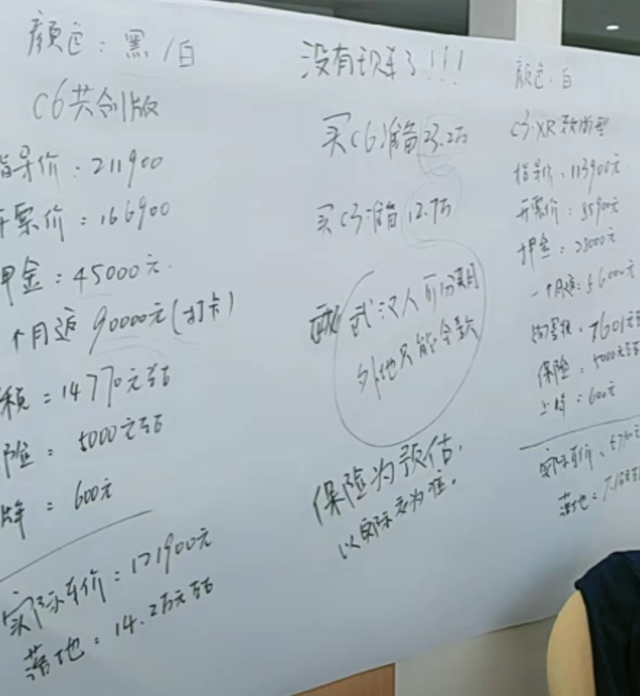 颜色：黑/白
C6共创版
指导价：211900
开票价：166900
押金：45000元
个月返 90000元(打卡)
税=14770元左右
险：5000元左右
牌=600元
实际车价：121900元
落地：14.2万元左右
没有现车了!!!
买C6准备23.2万
买C3准备12.7万
武汉人可以用
外地只能全款
保险为预估，
以实际交为准。
颜色：白
C3-XR
指导价：113900元
开票价：85900元
押金：28000元
一个月返：56000元
购置税：7601元
保险：5000元左右
上牌：600元
实际车价：
落地：